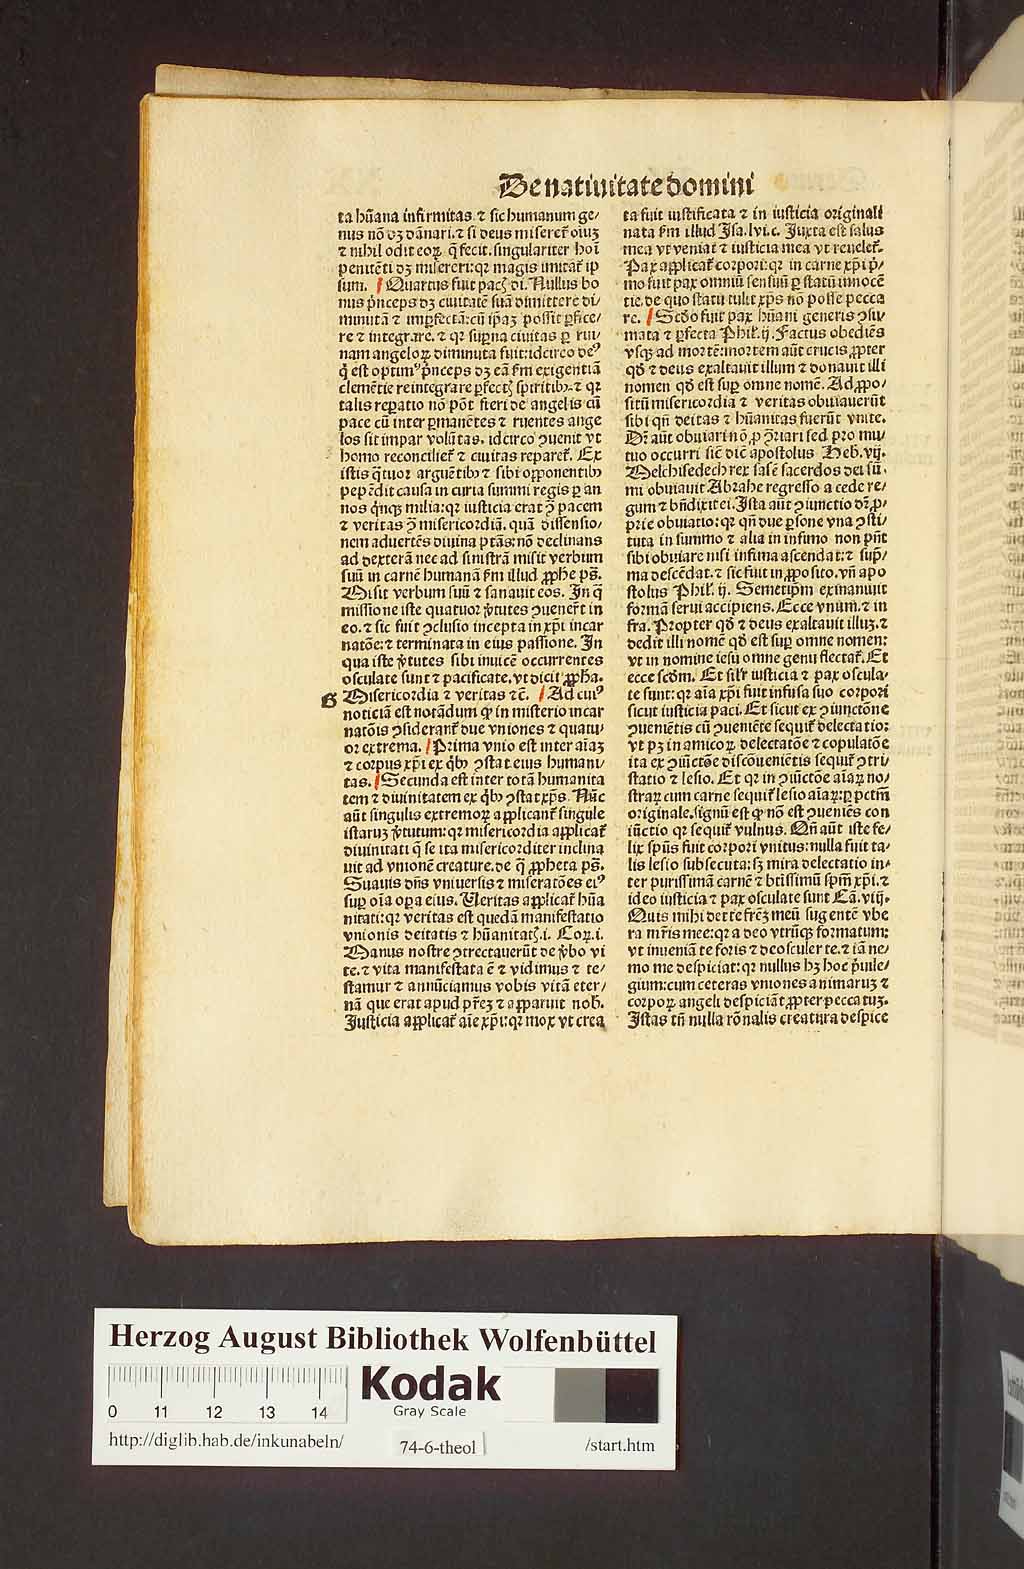 De natiuitate domini
ta hūana infirmitas ⁊ sic humanum ge⸗
nus nō dꝫ dānari. ⁊ si deus miseret᷑ oīuꝫ
⁊ nihil odit eoꝝ q̄ fecit. singulariter hoī
penitēti dꝫ misereri: qꝛ magis imitat᷑ ip
sum. Quartus fuit pacꝭ di. Nullus bo
nus p̄nceps dꝫ ciuitatē suā dimittere di
minutā ⁊ imꝑfectā: cū ip̄aꝫ possit ꝑfice⸗
re ⁊ integrare. ⁊ qꝛ suꝑna ciuitas ꝑ rui
nam angeloꝝ diminuta fuit: idcirco deꝰ
q̇ est optimꝰ p̄nceps dꝫ eā ẜm exigentiā
clemētie reintegrare ꝑfectꝭ spiritibꝫ. ⁊ qꝛ
talis reꝑatio nō pōt fieri de angelis cū
pace cū inter ꝑmanētes ⁊ ruentes ange
los sit impar volūtas. idcirco ꝯuenit vt
homo reconciliet᷑ ⁊ ciuitas reparet᷑. Ex
istis q̄tuor arguētibꝫ ⁊ sibi opponentibꝫ
pepēdit causa in curia summi regis ꝑ an
nos q̇nqꝫ milia: qꝛ iusticia erat ꝯ̄ pacem
⁊ veritas ꝯ̄ misericordiā. quā dissensio⸗
nem aduertēs diuina ptās: nō declinans
ad dexterā nec ad sinistrā misit verbum
suū in carnē humanā ẜm illud ꝓphe pš.
Misit verbum suū ⁊ sanauit eos. In q̄
missione iste quatuor v̓tutes ꝯuener̄t in
eo. ⁊ sic fuit ꝯclusio incepta in xp̄i incar
natōe: ⁊ terminata in eius passione. In
qua iste v̓tutes sibi inuicē occurrentes
osculate sunt ⁊ pacificate. vt dicit ꝓpha.
G Misericordia ⁊ veritas ⁊cē. Ad cuiꝰ
noticiā est notādum ꝙ in misterio incar
natōis ꝯsiderant᷑ due vniones ⁊ quatu⸗
or extrema. Prima vnio est inter aīaꝫ
⁊ corpus xp̄i ex q̇bꝫ ꝯstat eius humani⸗
tas. Secunda est inter totā humanita
tem ⁊ diuinitatem ex q̇bꝫ ꝯstat xp̄s. Nūc
aūt singulis extremoꝝ applicant᷑ singule
istaruꝫ v̓tutum: qꝛ misericordia applicat᷑
diuinitati q̄ se ita misericorditer inclina
uit ad vnionē creature. de q̄ ꝓpheta pš.
Suauis dn̄s vniuersis ⁊ miseratōes eiꝰ
suꝑ oīa oꝑa eius. Ueritas applicat᷑ hūa
nitati: qꝛ veritas est quedā manifestatio
vnionis deitatis ⁊ hūanitatꝭ. i. Coꝝ. i.
Manus nostre ꝯtrectauerūt de v̓bo vi
te. ⁊ vita manifestata ē ⁊ vidimus ⁊ te⸗
stamur ⁊ annūciamus vobis vitā eter⸗
nā que erat apud pr̄eꝫ ⁊ apparuit nob̄.
Justicia applicat᷑ aīe xp̄i: qꝛ mox vt crea
ta fuit iustificata ⁊ in iusticia originali
nata ẜm illud Jsa. lvi. c. Juxta est salus
mea vt veniat ⁊ iusticia mea vt reuelet᷑.
Pax applicat᷑ corpori: qꝛ in carne xp̄i p̄⸗
mo fuit pax omniū sensuū ꝑ statū innocē
tie. de quo statu tulit xp̄s nō posse pecca
re. Scd̄o fuit pax hūani generis ꝯsu⸗
mata ⁊ ꝑfecta Phil᷑. ij. Factus obediēs
vsqꝫ ad mortē: mortem aūt crucis ꝓpter
qd̄ ⁊ deus exaltauit illum ⁊ donauit illi
nomen qd̄ est suꝑ omne nomē. Ad ꝓpo⸗
sitū misericordia ⁊ veritas obuiauerūt
sibi qn̄ deitas ⁊ hūanitas fuerūt vnite.
Dr̄ aūt obuiari nō ꝓ ꝯ̄riari sed pro mu⸗
tuo occursu sic̄ dic̄ apostolus Heb̄. vij.
Melchisedech rex salē sacerdos dei sū⸗
mi obuiauit Abrahe regresso a cede re⸗
gum ⁊ bn̄dixit ei. Ista aūt ꝯiunctio dr̄ ꝓ⸗
prie obuiatio: qꝛ qn̄ due ꝑsone vna ꝯsti⸗
tuta in summo ⁊ alia in infimo non pn̄t
sibi obuiare nisi infima ascendat: ⁊ sup̄⸗
ma descēdat. ⁊ sic fuit in ꝓposito. vn̄ apo
stolus Phil᷑. ij. Semetip̄m exinanuit
formā serui accipiens. Ecce vnum. ⁊ in
fra. Propter qd̄ ⁊ deus exaltauit illuꝫ. ⁊
dedit illi nomē qd̄ est suꝑ omne nomen:
vt in nomine iesu omne genu flectat᷑. Et
ecce scd̄m. Et sil᷑r iusticia ⁊ pax oscula⸗
te sunt: qꝛ aīa xp̄i fuit infusa suo corpori
sicut iusticia paci. Et sicut ex ꝯiunctōne
ꝯueniētis cū ꝯueniēte sequit᷑ delectatio:
vt pꝫ in amicoꝝ delectatōe ⁊ copulatōe
ita ex ꝯiūctōe discōueniētis sequit᷑ ꝯtri
statio ⁊ lesio. Et qꝛ in ꝯiūctōe aīaꝝ no⸗
straꝝ cum carne sequit᷑ lesio aīaꝝ: ꝑ pctm̄
originale. signū est ꝙ nō est ꝯueniēs con
iūctio qꝛ sequit᷑ vulnus. Qn̄ aūt iste fe⸗
lix sp̄us fuit corpori vnitus: nulla fuit ta⸗
lis lesio subsecuta: sꝫ mira delectatio in⸗
ter purissimā carnē ⁊ btissimū sp̄m xp̄i. ⁊
ideo iusticia ⁊ pax osculate sunt Cā. viij.
Quis mihi det te fr̄eꝫ meū sugentē vbe
ra mr̄is mee: qꝛ a deo vtrūqꝫ formatum:
vt inueniā te foris ⁊ deosculer te. ⁊ iā ne⸗
mo me despiciat: qꝛ nullus hꝫ hoc p̄uile⸗
gium: cum ceteras vniones animaruꝫ ⁊
corpoꝝ angeli despiciāt ꝓpter peccatuꝫ.
Istas tn̄ nulla rōnalis creatura despice
Herzog August Bibliothek Wolfenbüttel
Kodak
Gray Scale
0 11 12 13 14
http://diglib.hab.de/inkunabeln/ 74-6-theol /start.htm